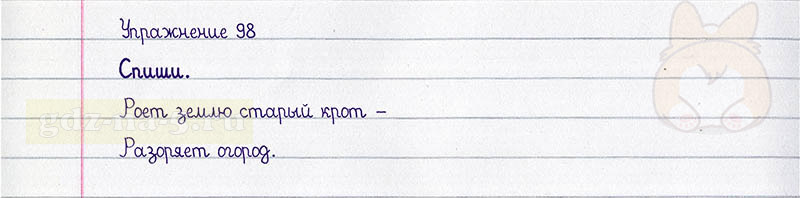 Упражнение 98
Спиши.
Роет землю старый крот –
Разоряет огород.
gdz-na-5.ru